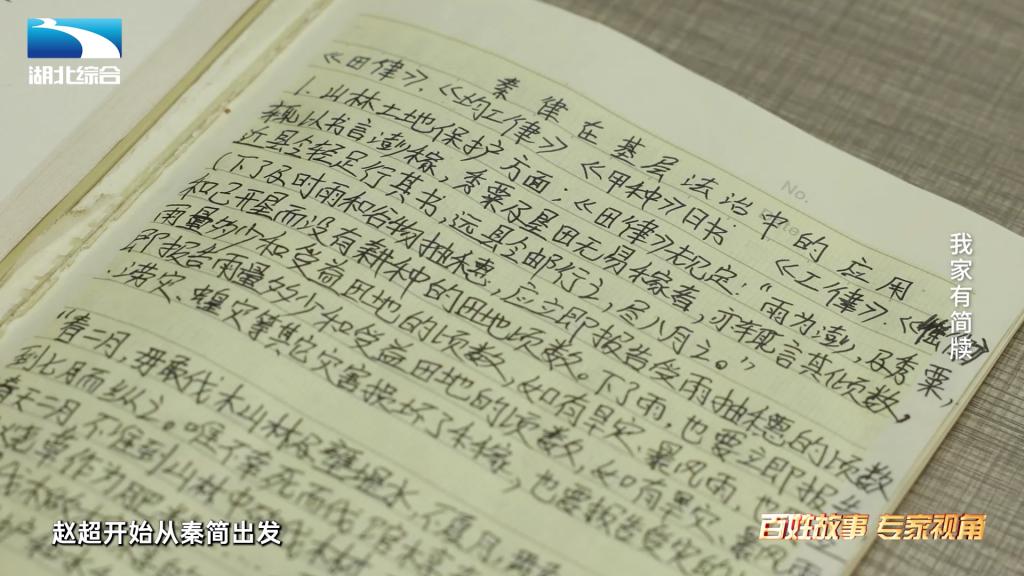 湖北综合
No.
秦律在基层法治中的应用
《田律》.《均工律》《甲种》日书 《工律》.《
1.山林土地保护方面:《田律》规定:“雨为澍,及秀粟,
辄以书言澍稼,秀粟及垦田无易稼者,亦辄言其化顷数,
近县令轻足行其书,远县令邮行之,尽八月之。”
(下了及时雨和谷物抽穗,应立即报告受雨抽穗的顷数
和已开垦而没有耕种的田地顷数。下了雨,也要立即报告
雨量多少和受益田地的顷数,如有旱灾、暴风雨,也
即报告雨量多少和受益田地的顷数,如有旱灾、暴风雨
涝灾、蝗灾等其它灾害损坏了禾稼,也要报告受灾的
“春二月,毋敢伐木山林及壅堤水,不夏月,毋
到七月而纵之。唯不幸死而伐
春天二月,不准到山林中砍伐木材
我家有简牍
赵超开始从秦简出发
百姓故事 专家视角